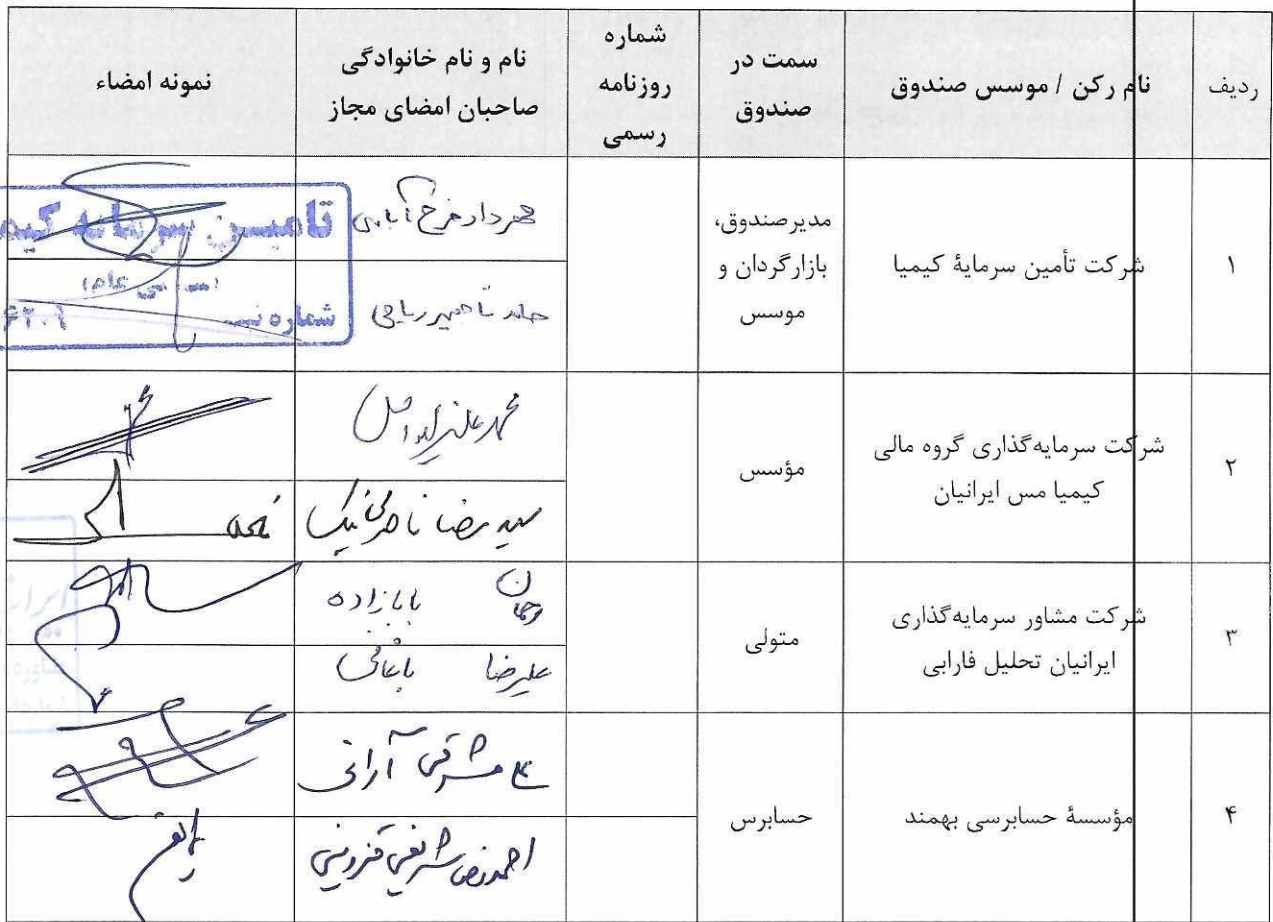 ردیف
نام رکن / موسس صندوق
سمت در
صندوق
شماره
روزنامه
رسمی
نام و نام خانوادگی
صاحبان امضای مجاز
نمونه امضاء
۱
شرکت تأمین سرمایهٔ کیمیا
مدیرصندوق،
بازارگردان و
موسس
مهرداد فرج آبادی
حامد تاجمیر ریاحی
تامین سرمایه کیمیا
شماره ثبت
۲
شرکت سرمایه‌گذاری گروه مالی
کیمیا مس ایرانیان
مؤسس
محمدعلی
سید رضا
۳
شرکت مشاور سرمایه‌گذاری
ایرانیان تحلیل فارابی
متولی
رحمان بابازاده
علیرضا باغانی
۴
مؤسسهٔ حسابرسی بهمند
حسابرس
مشرقی آرانی
احمدرضا شریفی قزوینی